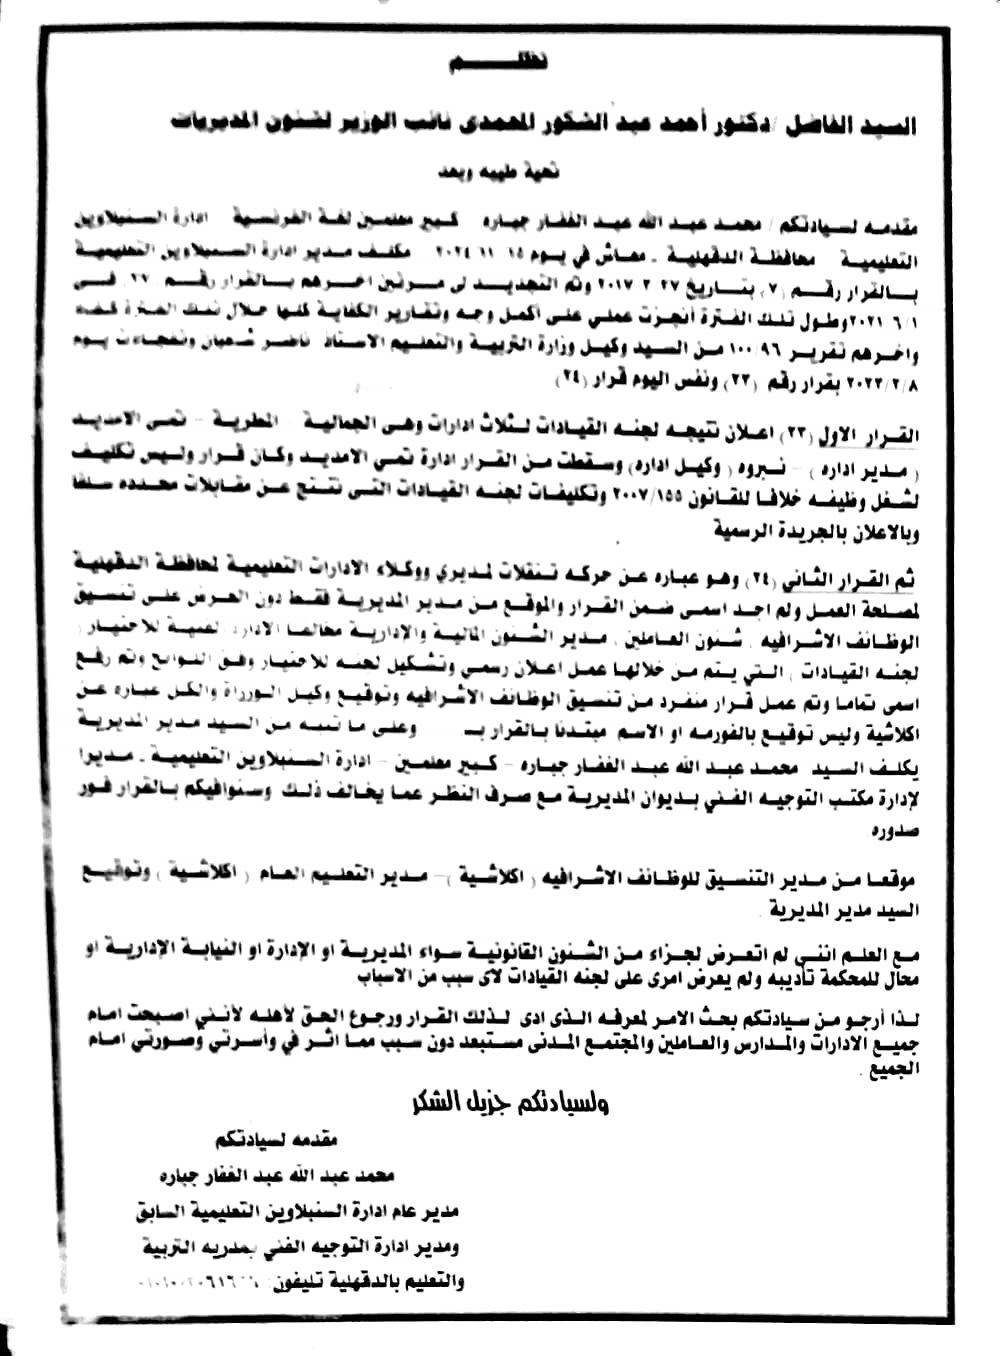 تظلـــــم
السيد الفاضل / دكتور أحمد عبد الشكور المحمدى نائب الوزير لشئون المديريات
تحية طيبه وبعد
مقدمه لسيادتكم / محمد عبد الله عبد الغفار جباره كبير معلمين لغة الفرنسية ادارة السنبلاوين
التعليمية محافظة الدقهلية ـ معاش في يوم ١٥ ١١ ٢٠٢٤ مكلف مدير ادارة السنبلاوين التعليمية
بالقرار رقم (٧) بتاريخ ٢٧ ٢ ٢٠١٧ وتم التجديد لى مرتين اخرهم بالقرار رقم ٢٧ فى
٢٠٢١/٦/١ وطول تلك الفترة أنجزت عملي على أكمل وجه وتقارير الكفاية كلها خلال تلك الفترة
واخرهم تقرير ١٠٠/٩٦ من السيد وكيل وزارة التربية والتعليم الاستاذ ناصر شعبان وتفجاءت يوم
٢٠٢٢/٢/٨ بقرار رقم (٢٣) ونفس اليوم قرار (٢٤)
القرار الاول (٢٣) اعلان نتيجه لجنه القيادات لثلاث ادارات وهى الجمالية - المطرية - تمى الامديد
( مدير اداره ) - نبروه ( وكيل اداره) وسقطت من القرار ادارة تمى الامديد وكان قرار وليس تكليف
لشغل وظيفه خلافا للقانون ٢٠٠٧/١٥٥ وتكليفات لجنه القيادات التى تنتج عن مقابلات محدده سلفا
وبالاعلان بالجريدة الرسمية
ثم القرار الثانى (٢٤) وهو عباره عن حركه تنقلات لمديري ووكلاء الادارات التعليمية لمحافظة الدقهلية
لمصلحة العمل ولم اجد اسمى ضمن القرار والموقع من مدير المديرية فقط دون العرض على تنسيق
الوظائف الاشرافيه , شئون العاملين , مدير الشئون المالية والإدارية مخالفا الادارة للاختيار (
لجنه القيادات ) التي يتم من خلالها عمل اعلان رسمى وتشكيل لجنه للاختيار وفق اللوائح وتم رفع
اسمى تماما وتم عمل قرار منفرد من تنسيق الوظائف الاشرافيه وتوقيع وكيل الوزراة والكل عباره عن
اكلاشية وليس توقيع بالفورمه او الاسم مبتدئا بالقرار بـ وعلى ما من السيد مدير المديرية
يكلف السيد محمد عبد الله عبد الغفار جباره - كبير معلمين - ادارة السنبلاوين التعليمية ـ مديرا
لإدارة مكتب التوجيه الفني بديوان المديرية مع صرف النظر عما يخالف ذلك وسنوافيكم بالقرار فور
صدوره
موقعا من مدير التنسيق للوظائف الاشرافيه ( اكلاشية )- مدير التعليم العام ( اكلاشية ) وتوقيع
السيد مدير المديرية .
مع العلم اننى لم اتعرض لجزاء من الشئون القانونية سواء المديرية او الإدارة او النيابة الإدارية او
محال للمحكمة تأديبه ولم يعرض امرى على لجنه القيادات لاى سبب من الاسباب
لذا أرجو من سيادتكم بحث الامر لمعرفه الذى ادى لذلك القرار ورجوع الحق لأهله لأنني اصبحت امام
جميع الادارات والمدارس والعاملين والمجتمع المدنى مستبعد دون سبب مما اثر في وأسرتي وصورتي امام
الجميع .
ولسيادتكم جزيل الشكر
مقدمه لسيادتكم
محمد عبد الله عبد الغفار جباره
مدير عام ادارة السنبلاوين التعليمية السابق
ومدير ادارة التوجيه الفني بمدريه التربية
والتعليم بالدقهلية تليفون: